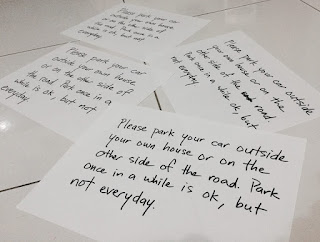 Please park your car
outside your own house
or on the other side of
the road. Park once in a
while is ok, but not
everyday.
Please park your car
outside your own house
or on the other side of
the road. Park once in a
while is ok, but not
everyday.
Please park your car outside
your own house or on the
other side of the road.
Park once in a while ok, but
not everyday.
Please park your car outside
your own house or on the
other side of the road. Park
once in a while is ok, but
not everyday.